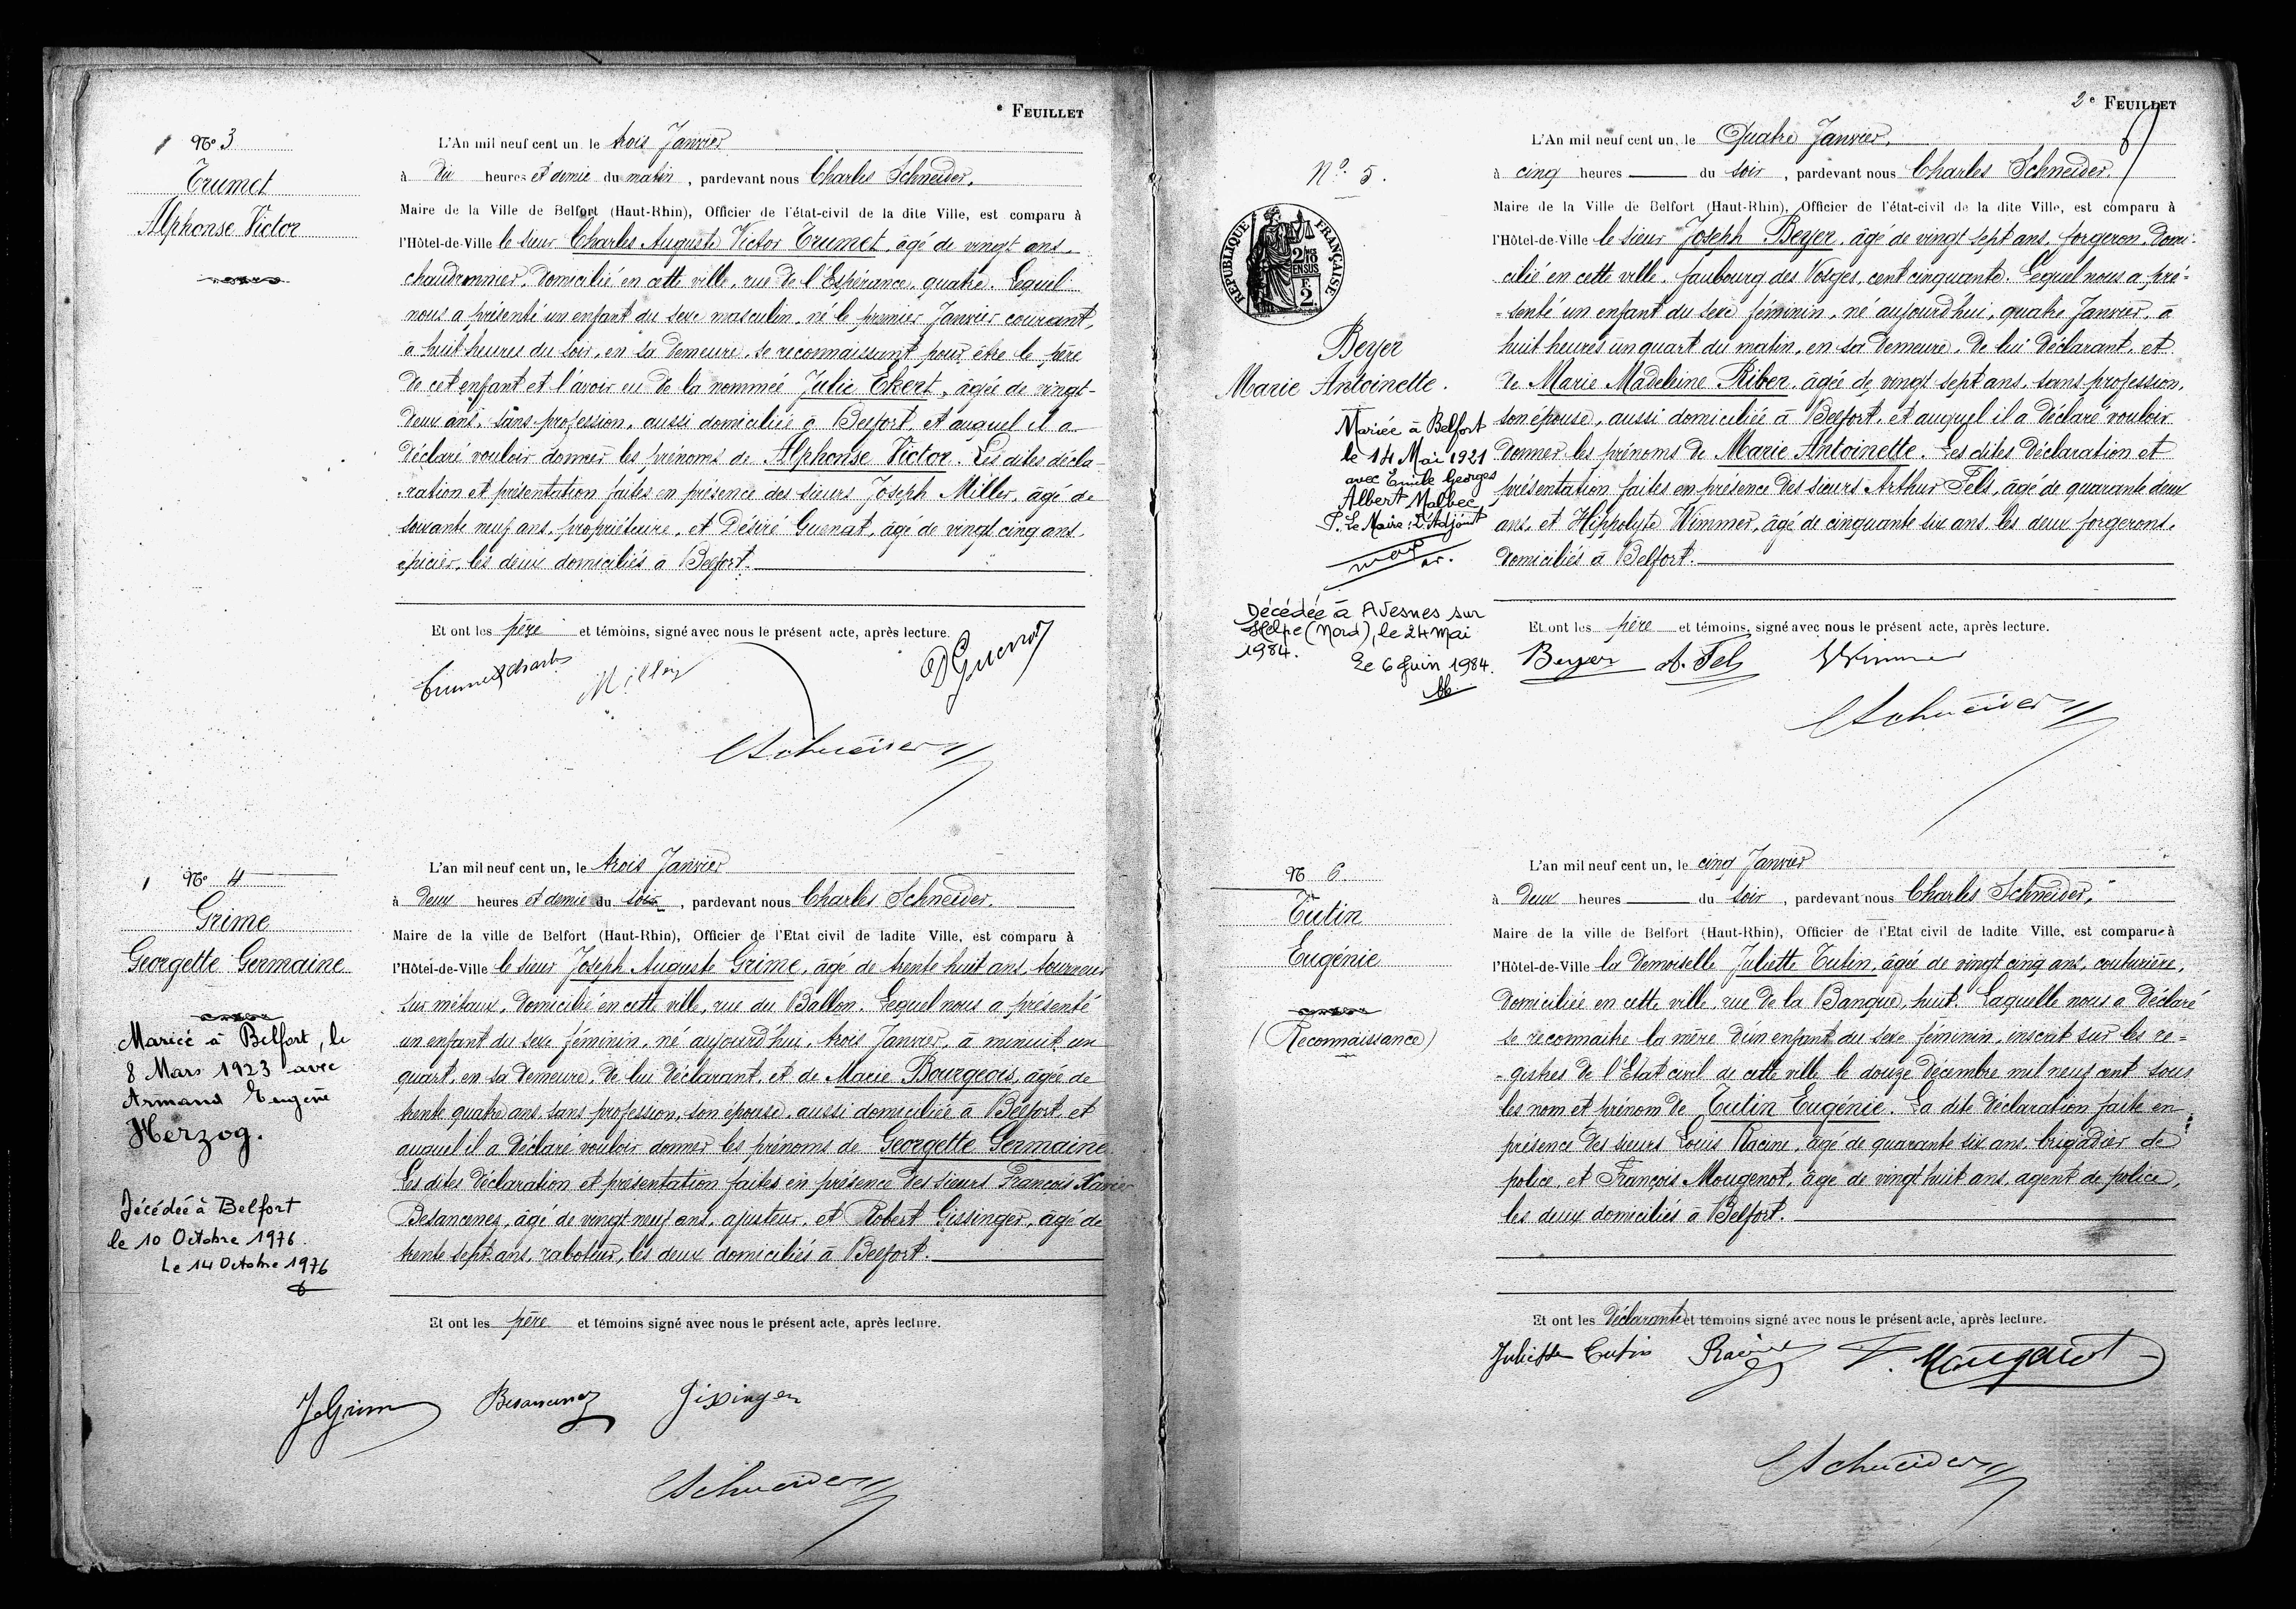 e FEUILLET
No 3
Trumet
Alphonse Victor
L'An mil neuf cent un, le trois Janvier
à dix heures et demie du matin, pardevant nous Charles Schneider,
Maire de la Ville de Belfort (Haut-Rhin), Officier de l'état-civil de la dite Ville, est comparu à
l'Hôtel-de-Ville le sieur Charles Auguste Victor Trumet, âgé de vingt ans,
chaudronnier, domicilié en cette ville, rue de l'Espérance, quatre. Lequel
nous a présenté un enfant du sexe masculin, né le premier Janvier courant,
à huit heures du soir, en sa demeure, se reconnaissant pour être le père
de cet enfant et l'avoir eu de la nommée Julie Ekert, âgée de vingt-
deux ans, sans profession, aussi domiciliée à Belfort, et auquel il a
déclaré vouloir donner les prénoms de Alphonse Victor. Les dites décla-
-ration et présentation faites en présence des sieurs Joseph Miller, âgé de
soixante neuf ans, propriétaire, et Désiré Guenat, âgé de vingt cinq ans,
épicier, les deux domiciliés à Belfort.
Et ont les père et témoins, signé avec nous le présent acte, après lecture.
Miller
DGuenat
CSchneider
No 4
Grime
Georgette Germaine
Mariée à Belfort, le
8 Mars 1923 avec
Armand Eugène
Herzog.
Décédée à Belfort
le 10 Octobre 1976.
Le 14 Octobre 1976
L'an mil neuf cent un, le trois Janvier
à deux heures et demie du soir, pardevant nous Charles Schneider,
Maire de la ville de Belfort (Haut-Rhin), Officier de l'Etat civil de ladite Ville, est comparu à
l'Hôtel-de-Ville le sieur Joseph Auguste Grime, âgé de trente huit ans, tourneur
sur métaux, domicilié en cette ville, rue du Ballon. Lequel nous a présenté
un enfant du sexe féminin, né aujourd'hui, trois Janvier, à minuit un
quart, en sa demeure, de lui déclarant, et de Marie Bourgeois, âgée de
trente quatre ans, sans profession, son épouse, aussi domiciliée à Belfort, et
auquel il a déclaré vouloir donner les prénoms de Georgette Germaine
Les dites déclaration et présentation faites en présence des sieurs François Xavier
Besancenez, âgé de vingt neuf ans, ajusteur, et Robert Gissinger, âgé de
trente sept ans, raboteur, les deux domiciliés à Belfort.
Et ont les père et témoins signé avec nous le présent acte, après lecture.
JGrime
Besancenez
Gissinger
CSchneider
2e FEUILLET
No 5.
RÉPUBLIQUE FRANÇAISE
2/10
EN SUS
F.
2
Beyer
Marie Antoinette.
Mariée à Belfort
le 14 Mai 1921
avec Emile Georges
Albert Malbec
P. Le Maire: L'Adjoint
Décédée à Avesnes sur
Helpe (Nord), le 24 mai
1984.
Le 6 Juin 1984.
L'An mil neuf cent un, le Quatre Janvier,
à cinq heures du soir, pardevant nous Charles Schneider,
Maire de la Ville de Belfort (Haut-Rhin), Officier de l'état-civil de la dite Ville, est comparu à
l'Hôtel-de-Ville le sieur Joseph Beyer, âgé de vingt sept ans, forgeron, domi-
cilié en cette ville, faubourg des Vosges, cent cinquante. Lequel nous a pré-
-senté un enfant du sexe féminin, né aujourd'hui, quatre Janvier, à
huit heures un quart du matin, en sa demeure, de lui déclarant, et
de Marie Madeleine Riber, âgée de vingt sept ans, sans profession,
son épouse, aussi domiciliée à Belfort, et auquel il a déclaré vouloir
donner les prénoms de Marie Antoinette. Les dites déclaration et
présentation faites en présence des sieurs Arthur Fels, âgé de quarante deux
ans, et Hippolyte Wimmer, âgé de cinquante six ans, les deux forgerons,
domiciliés à Belfort.
Et ont les père et témoins, signé avec nous le présent acte, après lecture.
Beyer
A. Fels
Wimmer
CSchneider
No 6.
Tutin
Eugénie
(Reconnaissance)
L'an mil neuf cent un, le cinq Janvier
à deux heures du soir, pardevant nous Charles Schneider,
Maire de la ville de Belfort (Haut-Rhin), Officier de l'Etat civil de ladite Ville, est comparue à
l'Hôtel-de-Ville la demoiselle Juliette Tutin, âgée de vingt cinq ans, couturière,
domiciliée en cette ville, rue de la Banque, huit. Laquelle nous a déclaré
se reconnaitre la mère d'un enfant du sexe féminin, inscrit sur les re-
-gistres de l'Etat civil de cette ville le douze décembre mil neuf cent sous
les nom et prénom de Tutin Eugénie. La dite déclaration faite en
présence des sieurs Louis Racine, âgé de quarante six ans, brigadier de
police, et François Mougenot, âgé de vingt huit ans, agent de police,
les deux domiciliés à Belfort.
Et ont les déclarante et témoins signé avec nous le présent acte, après lecture.
Juliette Tutin
Racine
F. Mougenot
CSchneider